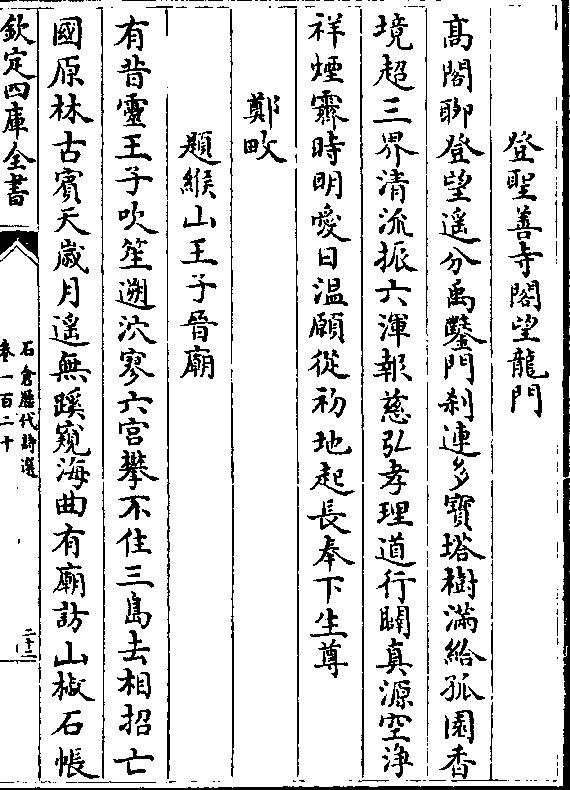 登聖善寺閣望龍門
高閣聊登望遥分禹鑿門刹連多寶塔樹滿給孤園香
境超三界清流振六渾報慈弘孝理道行闢真源空浄
祥煙霽時明愛日温願從初地起長奉下生尊
鄭畋
題緱山王子晉廟
有昔靈王子吹笙遡泬寥六宫攀不住三島去相招亡
國原林古賓天嵗月遥無蹊窺海曲有廟訪山椒石帳
欽定四庫全書
石倉歴代詩選
卷一百二十
二十三